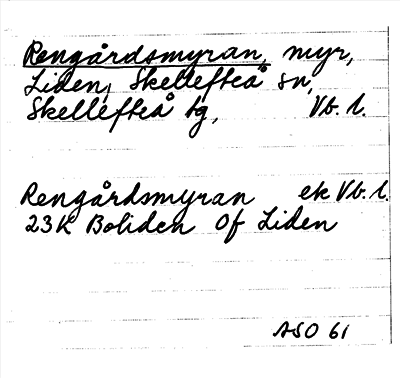 Rengårdsmyran, myr,
Liden, Skellefteå sn,
Skellefteå tg, Vb. l.
Rengårdsmyran ek Vb. l.
23K Boliden Of Liden
ASO 61